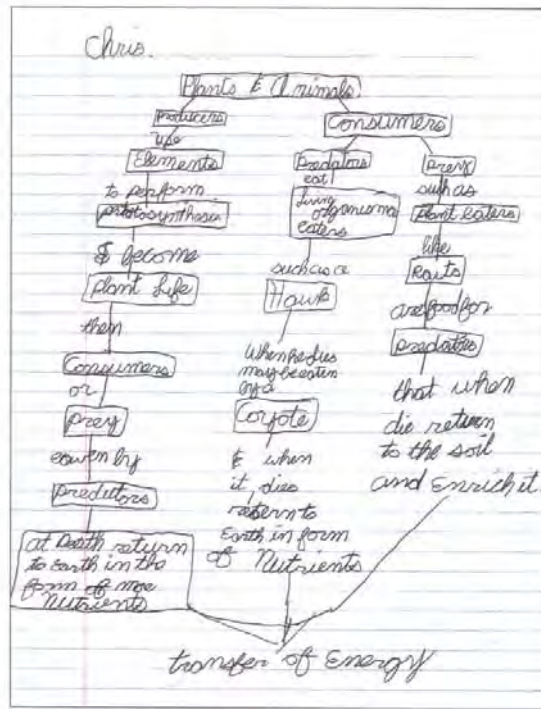 Chris.
Plants & Animals
Producers
use
Elements
to perform
photosynthesis
& become
Plant Life
then
Consumers
or
prey
by
predutors
at Death return
to Earth in the
form of moe
Nutrients
Consumers
Predators
eat
living
organisms
eaters
such as a
Hawk
When he dies
may be eaten
by a
Coyote
& when
it dies
return to
Earth in form
of Nutrients
prey
such as
plant eaters
like
are food for
predators
that when
die return
to the soil
and Enrich it.
transfer of Energy